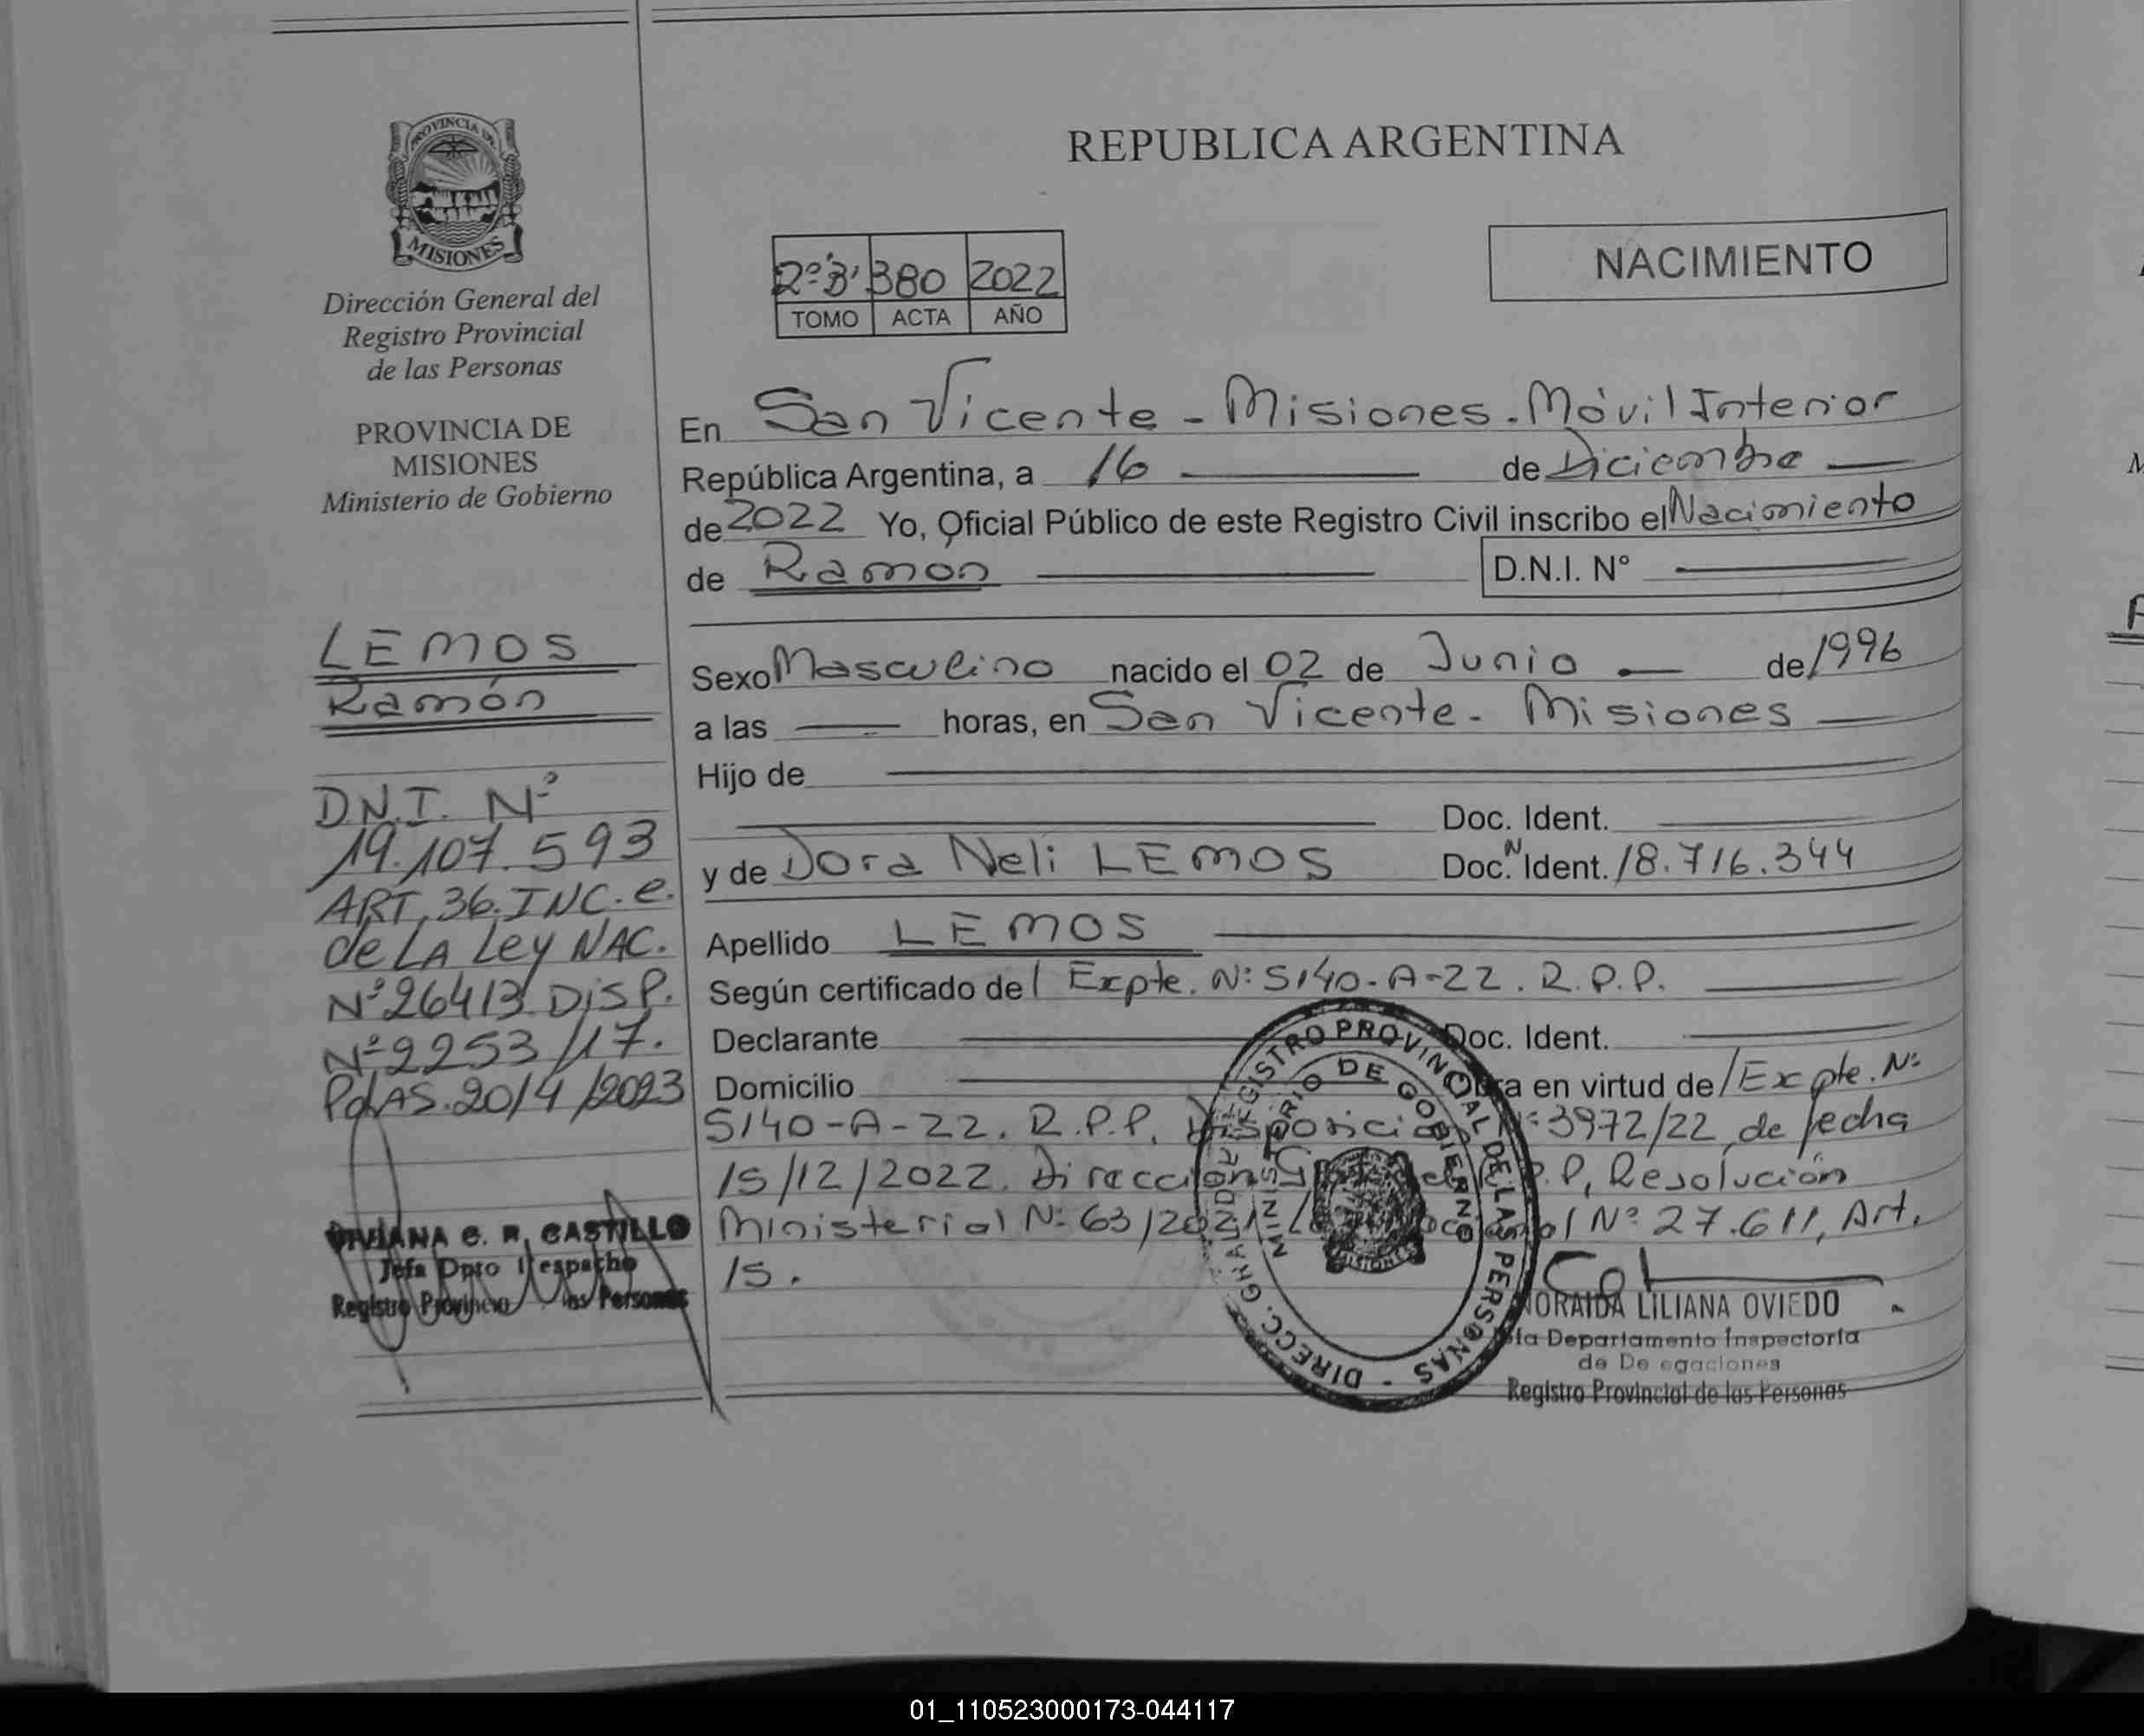 PROVINCIA DE
MISIONES
Dirección General del
Registro Provincial
de las Personas
PROVINCIA DE
MISIONES
Ministerio de Gobierno
LEMOS
Ramón
D.N.I. Nº
19.107.593
ART. 36. INC. e.
de LA Ley NAC.
Nº 26413 DISP.
Nº 2253/17.
PdAS. 20/4/2023
VIVIANA C. R. CASTILLO
Jefa Dpto Despacho
Registro Provincial las Personas
REPUBLICA ARGENTINA
NACIMIENTO
2º "B" 380 2022
TOMO ACTA AÑO
En San Vicente - Misiones - Móvil Interior
República Argentina, a 16 de Diciembre
de 2022 Yo, Oficial Público de este Registro Civil inscribo el Nacimiento
de Ramon D.N.I. N°
Sexo Masculino nacido el 02 de Junio de 1996
a las horas, en San Vicente - Misiones
Hijo de
Doc. Ident.
y de Dora Neli LEMOS Doc. N Ident. 18.716.344
Apellido LEMOS
Según certificado del Expte. Nº 5140-A-22. R.P.P.
Declarante Doc. Ident.
Domicilio Obra en virtud de/Expte. Nº
5140-A-22. R.P.P. Disposición Nº 3972/22, de fecha
15/12/2022. Dirección Gral del R.P.P, Resolución
Ministerial Nº 63/2021 Nº 27.611, Art.
15.
DIRECC. GRAL DE REGISTRO PROVINCIAL DE LAS PERSONAS
MINISTERIO DE GOBIERNO
MISIONES
ZORAIDA LILIANA OVIEDO
Jefa Departamento Inspectoría
de Delegaciones
Registro Provincial de las Personas
01_110523000173-044117